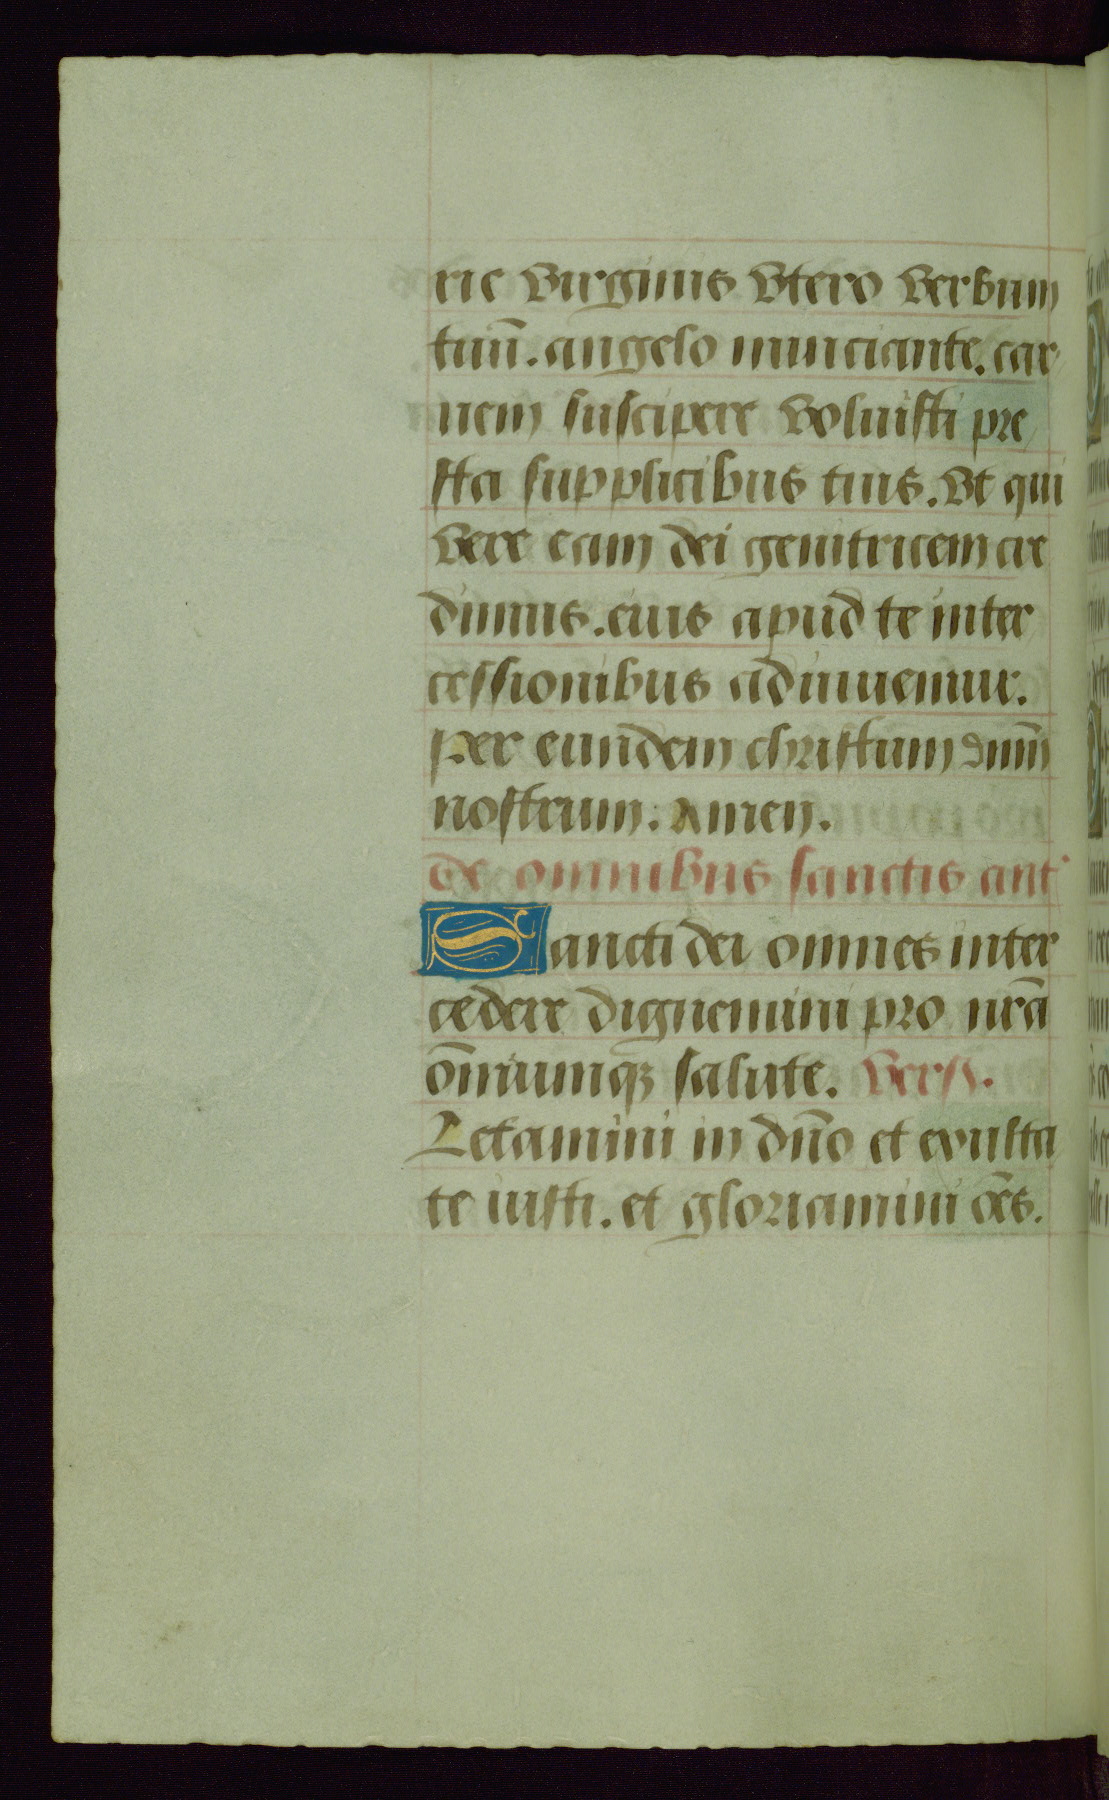 rie virginis vtero verbum
tuū. angelo nunciante. car
nem suscipere voluisti pre
sta supplicibus tuis. vt qui
vere eam dei genitricem cre
dimus. eius apud te inter
cessionibus adiuuemur.
Per eundem christum dnm̄
nostrum. Amen.
de omnibus sanctis ant'
Sancti dei omnes inter
cedere dignemini pro nrā
oīniumqꝫ salute. Vers.
Letamini in dn̄o et exulta
te iusti. et gloriamini oēs.